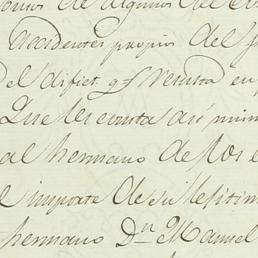 de algunos de
Accidentes propios del
del difict q.e resulta en
Que les consta asi mim
al hermano de los
importe de su lexitim
hermano Dn Manuel